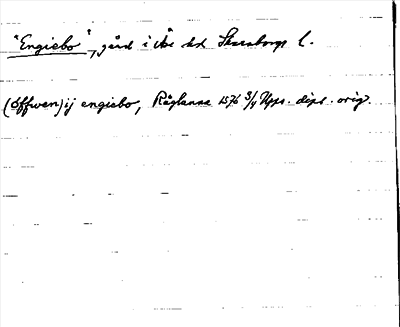 "Engisbo", gård i Ås sn Skaraborgs l.
(offwen)ij engisbo, Råglanna 1576 3/4 Upps. dipl. orig.